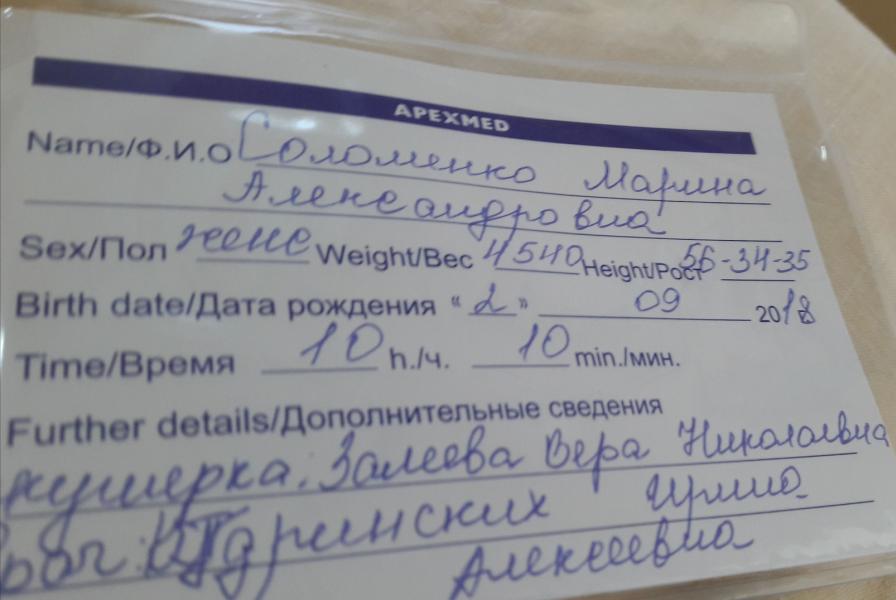 APEXMED
Name/Ф.И.О Соломенко Марина
Александровна
Sex/Пол жене Weight/Вес 4540 Height/Рост 56-34-35
Birth date/Дата рождения "2" 09 2018
Time/Время 10 h./ч. 10 min./мин.
Further details/Дополнительные сведения
акушерка. Залеева Вера Николаевна
врач: Юлия
Алексеевна